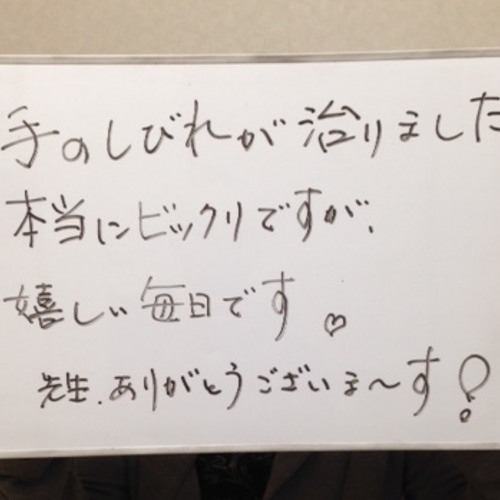 手のしびれが治りました
本当にビックリですが、
嬉しい毎日です♡
先生、ありがとうございま〜す!